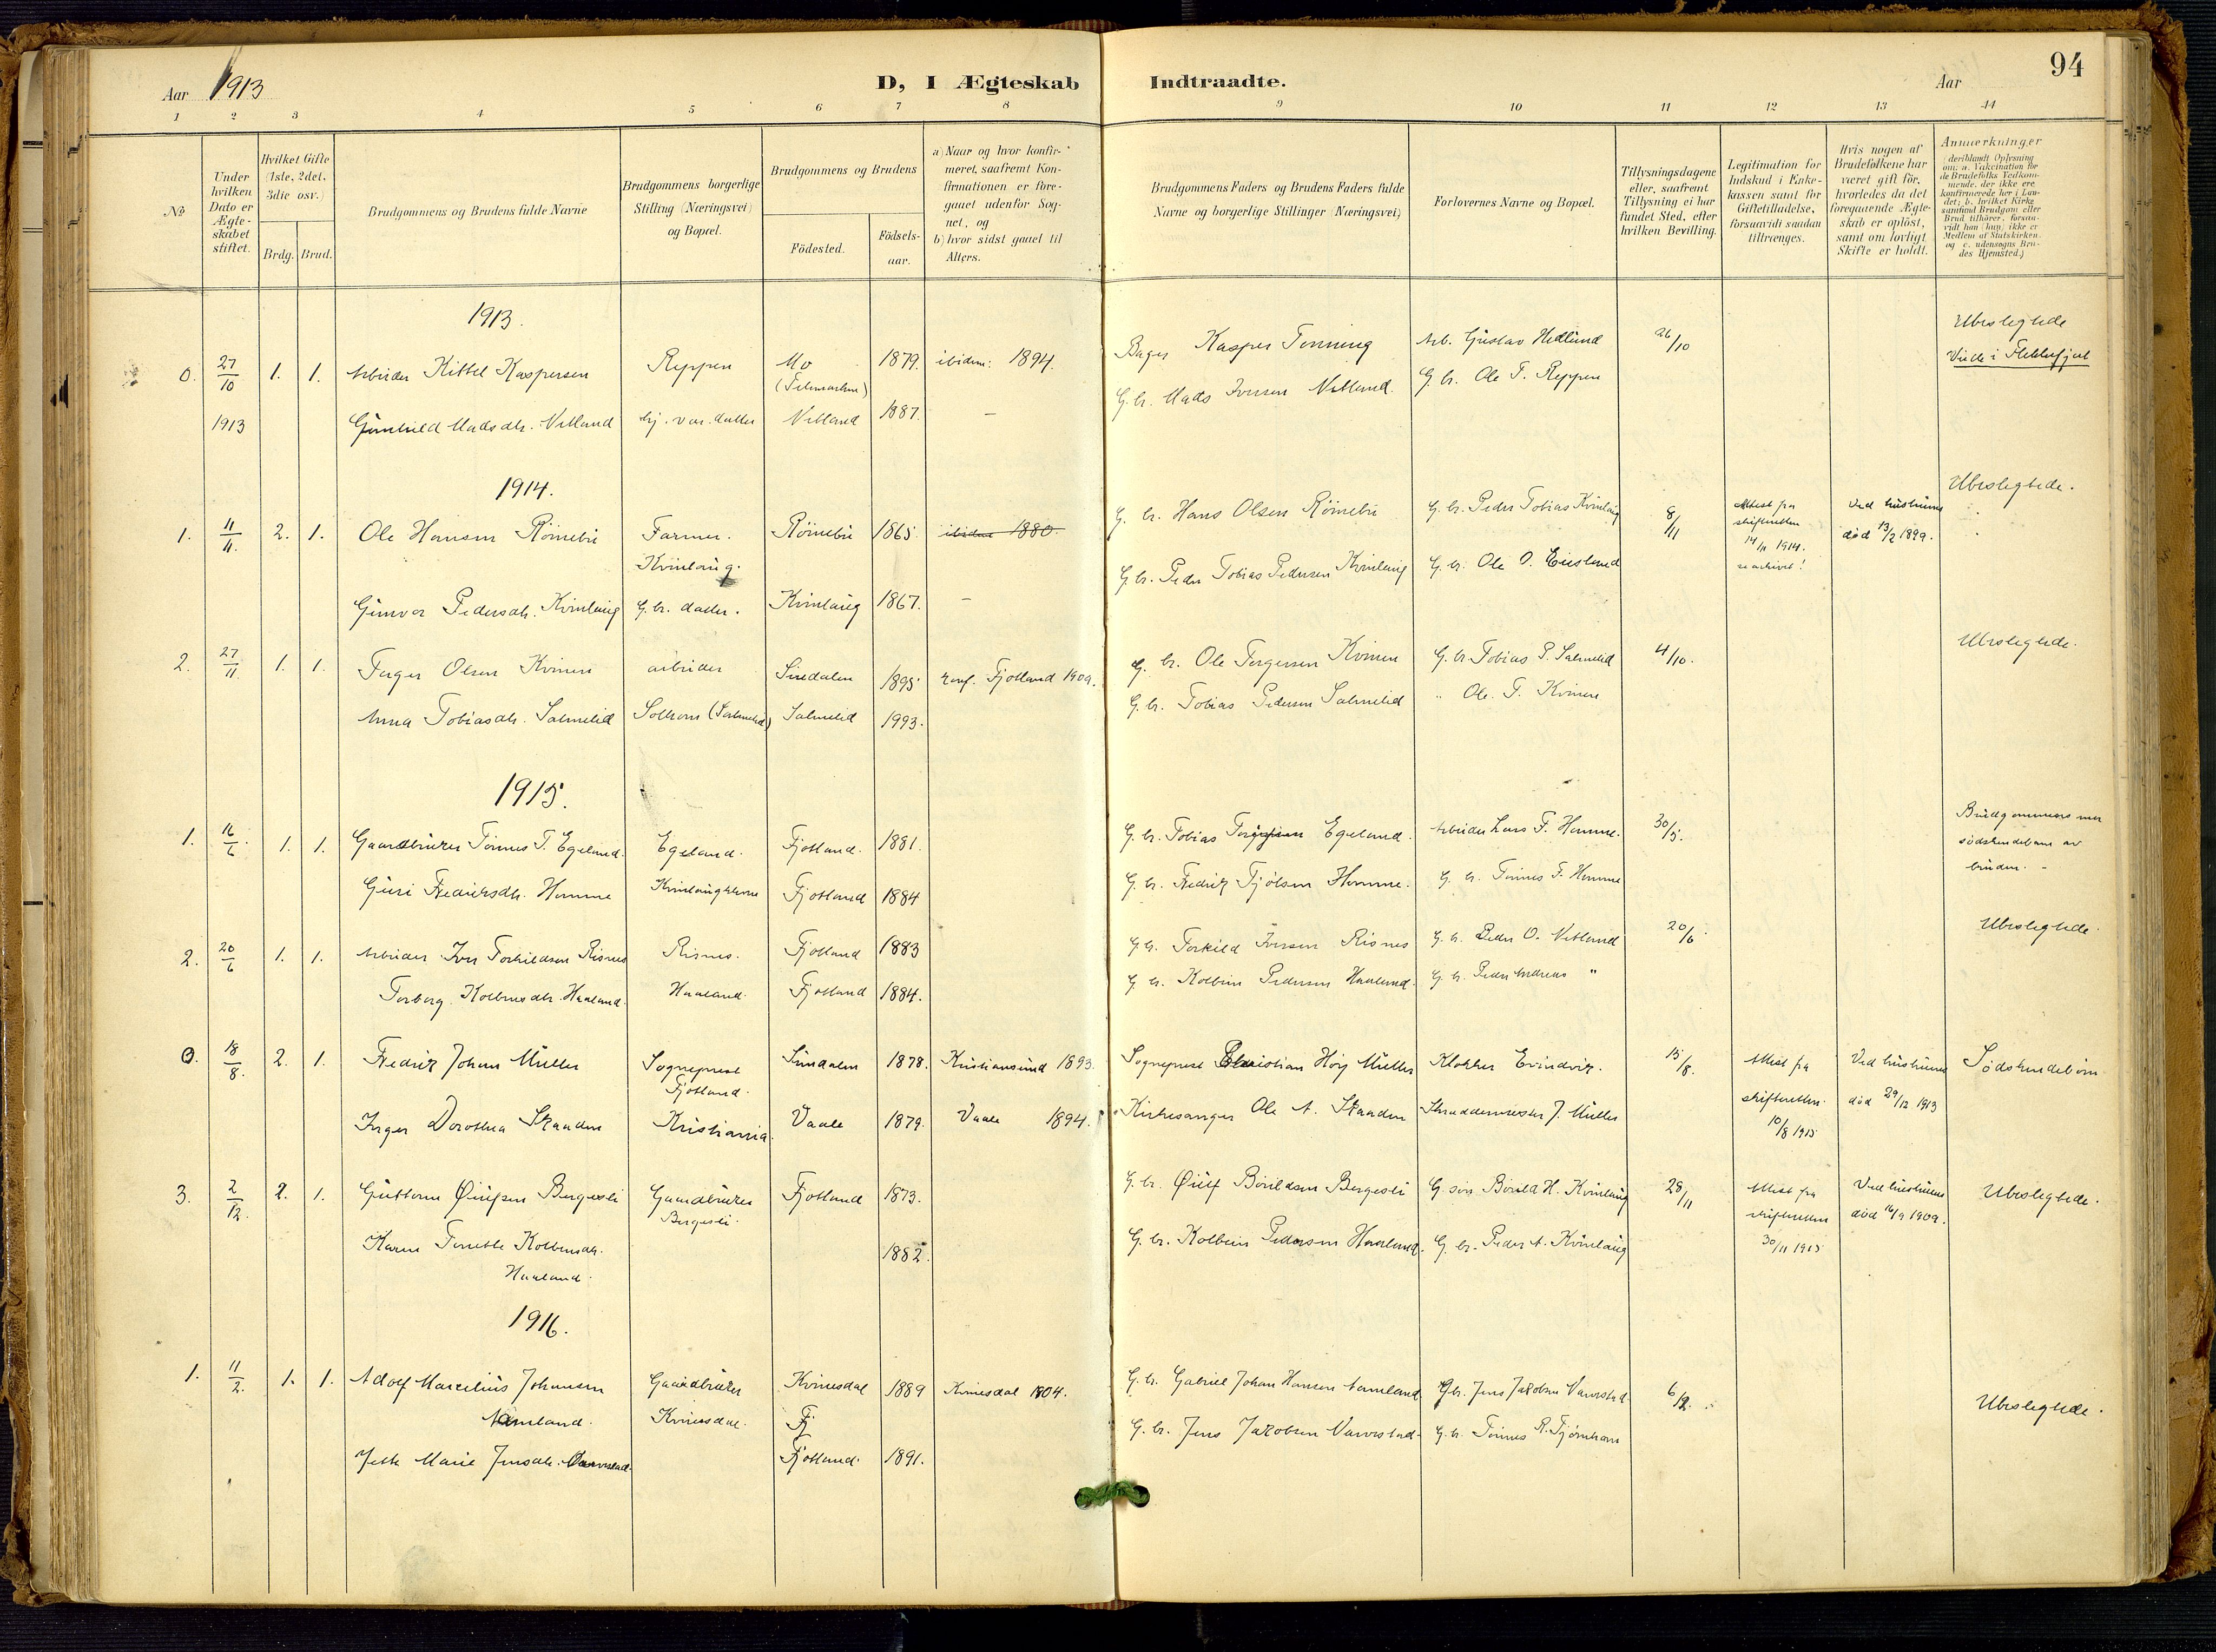 Aar 1913
D, I Ægteskab Indtraadte.
Aar
94
1 2 3 4 5 6 7 8 9 10 11 12 13 14
No
Under hvilken Dato er Ægteskabet stiftet.
Hvilket Gifte (1ste, 2det, 3die osv.)
Brdg. Brud.
Brudgommens og Brudens fulde Navne
Brudgommens borgerlige Stilling (Næringsvei) og Bopæl.
Brudgommens og Brudens
Födested.
Födsels-aar.
a) Naar og hvor konfirmeret, saafremt Konfirmationen er foregaaet udenfor Sognet, og
b) hvor sidst gaaet til Alters.
Brudgommens Faders og Brudens Faders fulde Navne og borgerlige Stillinger (Næringsvei)
Forlovernes Navne og Bopæl.
Tillysningsdagene eller, saafremt Tillysning ei har fundet Sted, efter hvilken Bevilling.
Legitimation for Indskud i Enkekassen samt for Giftetilladelse, forsaavidt saadan tiltrænges.
Hvis nogen af Brudefolkene har været gift för, hvorledes da det foregaaende Ægteskab er oplöst, samt om lovligt Skifte er holdt.
Anmærkninger (deriblandt Oplysning om: a. Vakcination for de Brudefolks Vedkommende, der ikke ere konfirmerede her i Landet; b. hvilket Kirkesamfund Brudgom eller Brud tilhörer, forsaavidt han (hun) ikke er Medlem af Statskirken og c. udensogns Brudes Hjemsted.)
1913.
0. 27/10 1. 1. Arbeider Kittel Kaspersen Reppen Mo (Telemarken) 1879. ibidem: 1894. Bager Kasper Tonning Arb. Gustav Hedlund 26/10 Ubeslegtede
Viede i Flekkefjord
1913 Gunhild Madsdtr. Netland hj. vær. datter Netland 1887. – G.br. Mads Iversen Netland. G.br. Ole T. Reppen
1914.
1. 11/11. 2. 1. Ole Hansen Römebu Farmer. Kvinlaug. Römebu 1865. ibidem 1880. G. br. Hans Olsen Römebu G. br. Peder Tobias Kvinlaug 8/11 Attest fra skifteretten 14/11 1914. se arkivet! Ved hustruens död 13/2 1899. Ubeslegtede.
Gunvor Pedersdtr. Kvinlaug G. br. datter. Kvinlaug 1867. – G.br. Peder Tobias Pedersen Kvinlaug G. br. Ole O. Eiesland
2. 27/11. 1. 1. Torger Olsen Kvinen arbeider Sirdalen 1895 konf. Fjotland 1909. G. br. Ole Torgersen Kvinen G. br. Tobias P. Salmelid 4/10. Ubeslegtede.
Anna Tobiasdtr. Salmelid Solhom (Salmelid) Salmelid 1993. G. br. Tobias Pedersen Salmelid " Ole. T. Kvinen
1915.
1. 16/6. 1. 1. Gaardbruker Tönnes T. Egeland. Egeland. Fjotland. 1881. G. br. Tobias Egeland. Arbeider Lars F. Homme. 30/5. Brudgommens mor södskendebarn av bruden. –
Guri Fredriksdtr. Homme Fjotland 1884 G. br. Fredrik Tjölsen Homme. G. br. Tönnes F. Homme
2. 20/6 1. 1. Arbeider Iver Torkildsen Risnes Risnes. Fjotland 1883 G. br. Torkild Iversen Risnes G. br. Peder O. Netland 20/6 Ubeslegtede.
Torborg Kolbensdtr. Haaland. Haaland. Fjotland 1884. G. br. Kolben Pedersen Haaland. G. br. Peder Andreas "
0. 18/8. 2. 1. Fredrik Johan Müller Sogneprest Fjotland. 1878. Kristiansund 1893. Sogneprest Christian Höy Müller Klokker Evindvik. 15/8. Attest fra skifteretten 10/8 1915 Ved hustruens död 29/12 1913 Södskendebörn
Inger Dorothea Skaaden Kristiania Vaale 1879. Vaale 1894. Kirkesanger Ole A. Skaaden Skreddermester J. Müller
3. 2/12. 2. 1. Guttorm Øiufsen Bergesli Gaardbruker Bergesli. Fjotland 1873. G. br. Øiuf Böruldsen Bergesli G. sön Boruld H. Kvinlaug 28/11 Attest fra skifteretten 30/11 1915 Ved hustruens död 16/9 1909. Ubeslegtede.
Karen Tonette Kolbensdtr. Haaland. 1882. G. br. Kolben Pedersen Haaland. G. br. Peder A. Kvinlaug
1916.
1. 11/2. 1. 1. Adolf Marcelius Johansen Aamland. Gaardbruker Kvinesdal. Kvinesdal 1889 Kvinesdal 1904. G. br. Gabriel Johan Hansen Aamland G.br. Jens Jakobsen Vanvstad 6/2. Ubeslegtede.
Fj
Jette Marie Jensdtr. Fjotland. 1891. G. br. Jens Jakobsen G. br. Tönnes R. Fjörnham